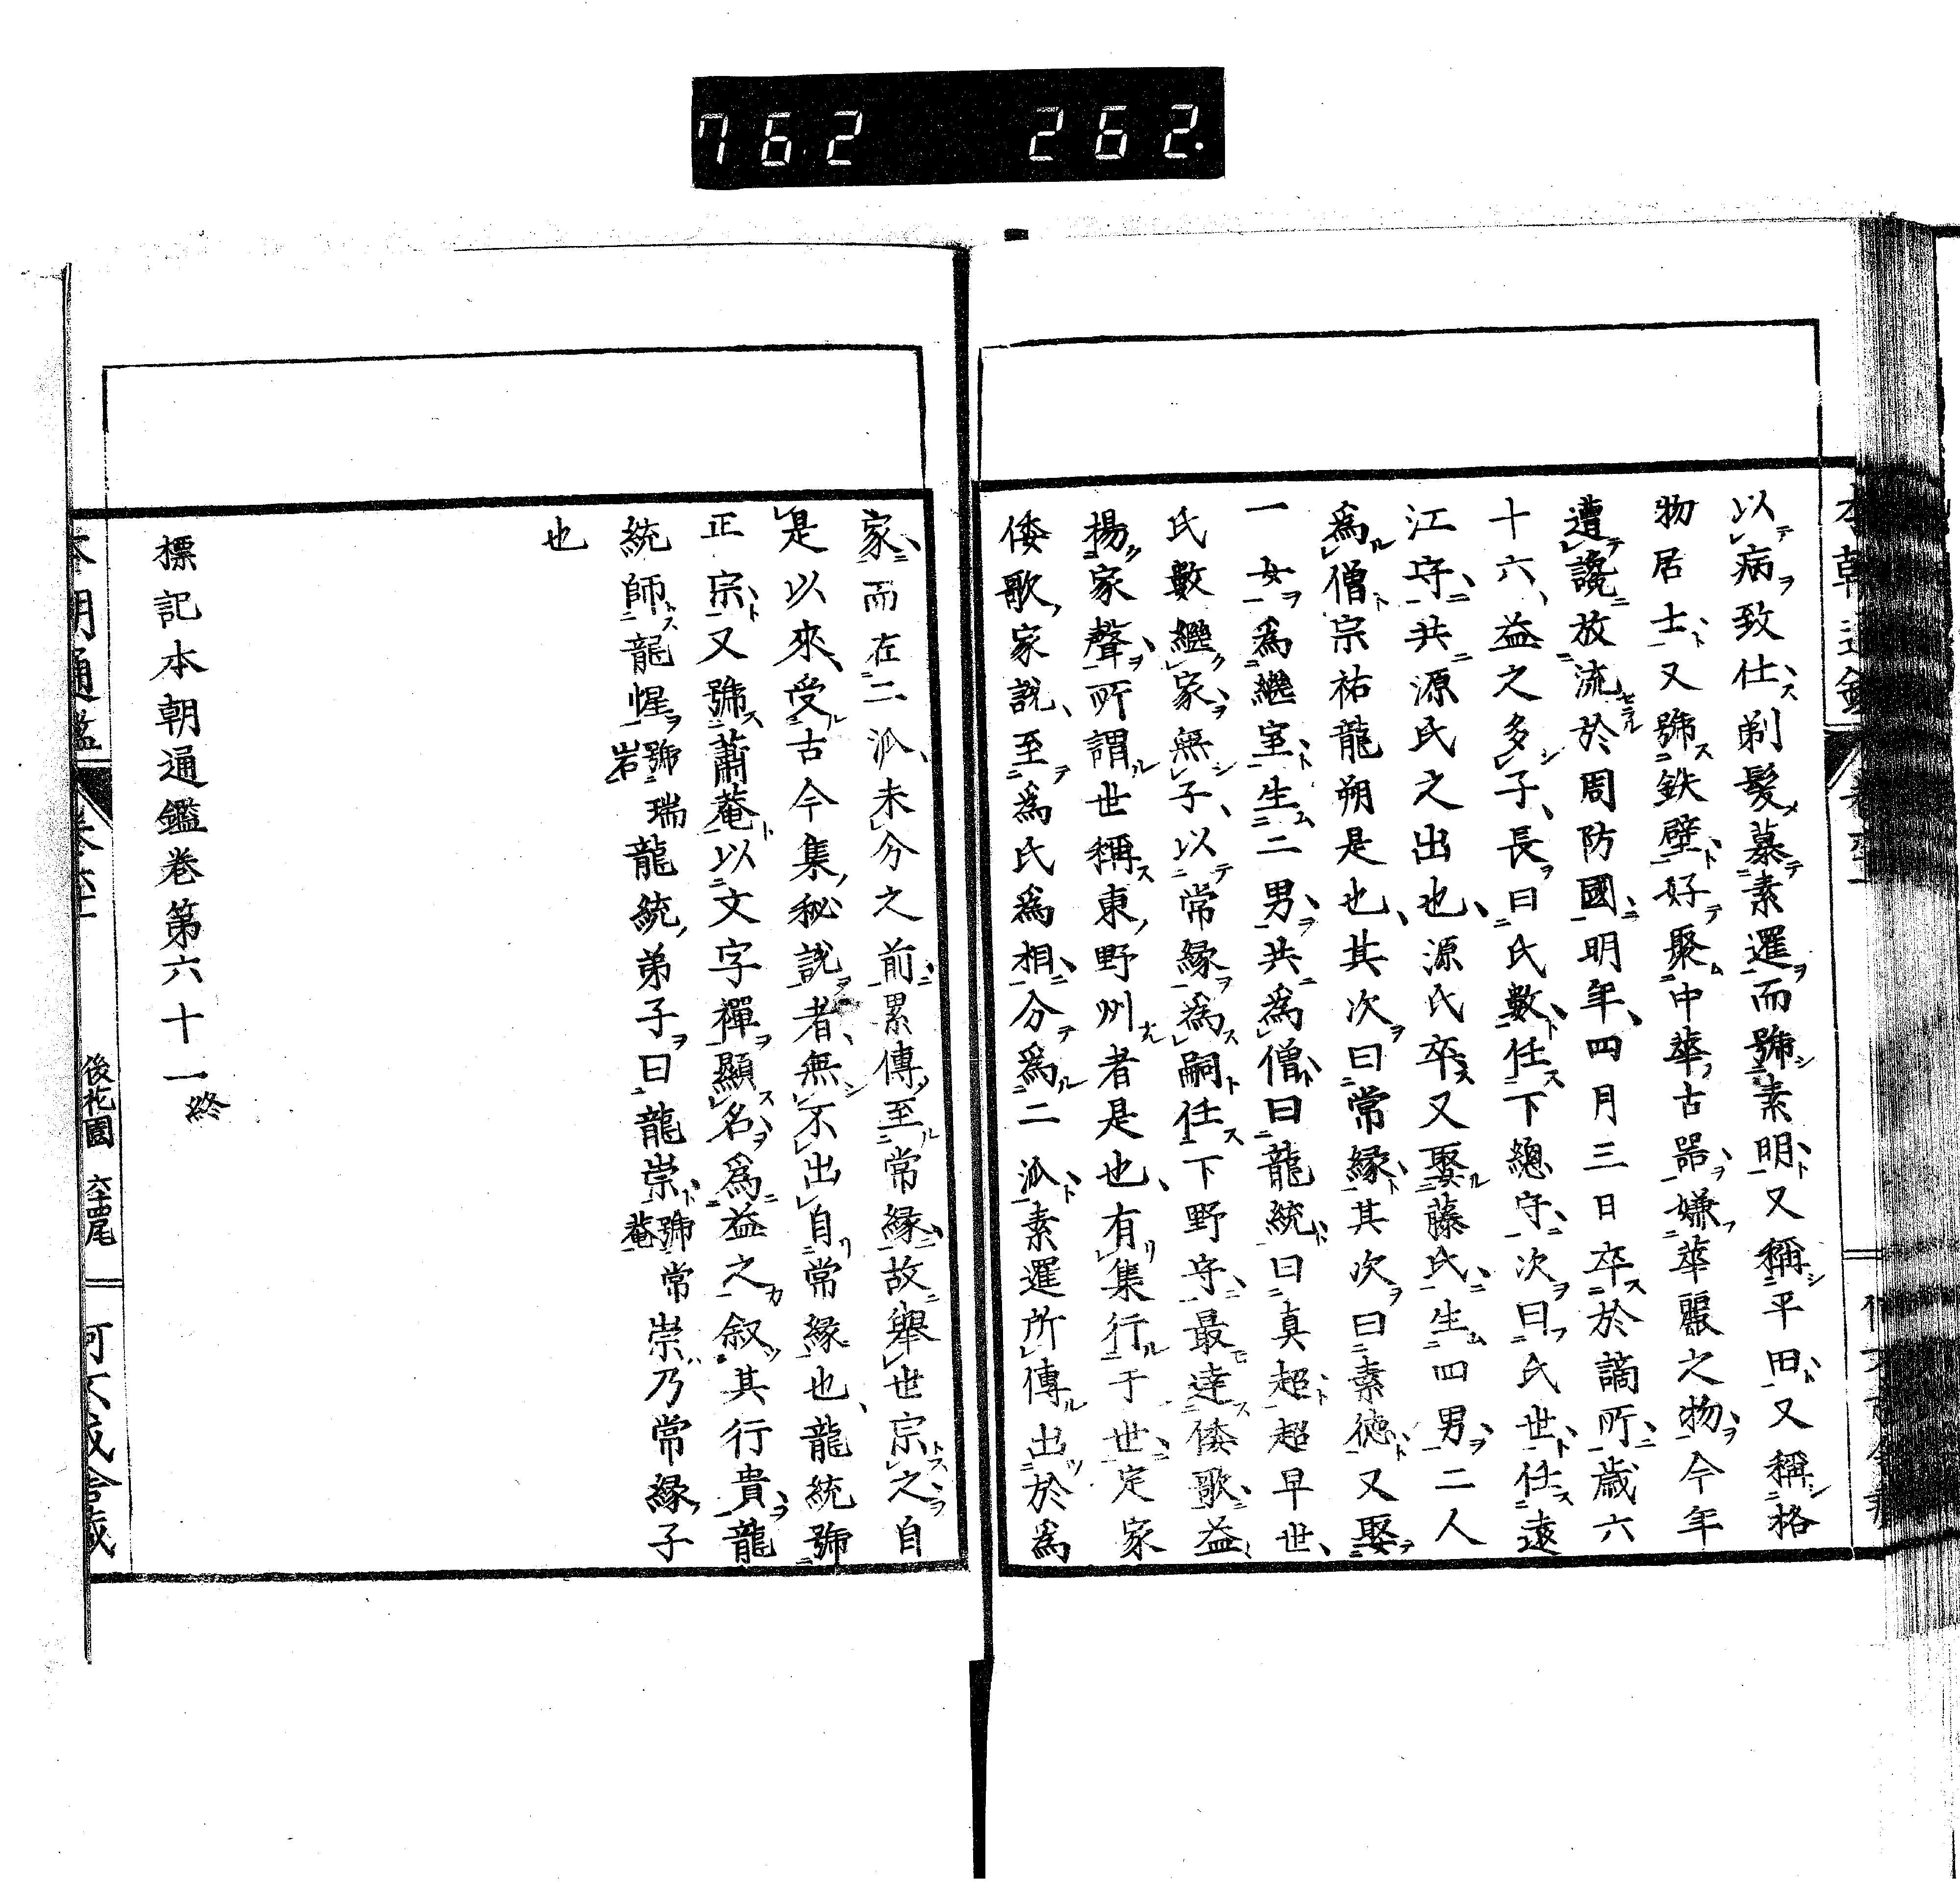 762 262.
以病致仕剃髮慕素暹而號素明又稱平田又稱格
物居士又號鉄壁好聚中華古器嫌華麗之物今年
遭讒放流於周防國明年四月三日卒於謫所歳六
十六益之多子長曰氏數任下總守次曰氏世任遠
江守共源氏之出也源氏卒又娶藤氏生四男二人
爲僧宗祐龍朔是也其次曰常縁其次曰素徳又娶
一女爲繼室生二男共爲僧曰龍統曰真超超早世
氏數繼家無子以常縁爲嗣任下野守最達倭歌益
揚家聲所謂世稱東野州者是也有集行于世定家
倭歌家説至爲氏爲相分爲二泒素暹所傳出於爲
家而在二泒未分之前累傳至常縁故舉世宗之自
是以來受古今集秘説者無不出自常縁也龍統號
正宗又號蕭菴以文字禪顯名爲益之叙其行貴龍
統師龍惺號瑞岩龍統弟子曰龍崇號常菴崇乃常縁子
也
標記本朝通鑑巻第六十一終
本朝通鑑 後花園 六十四尾